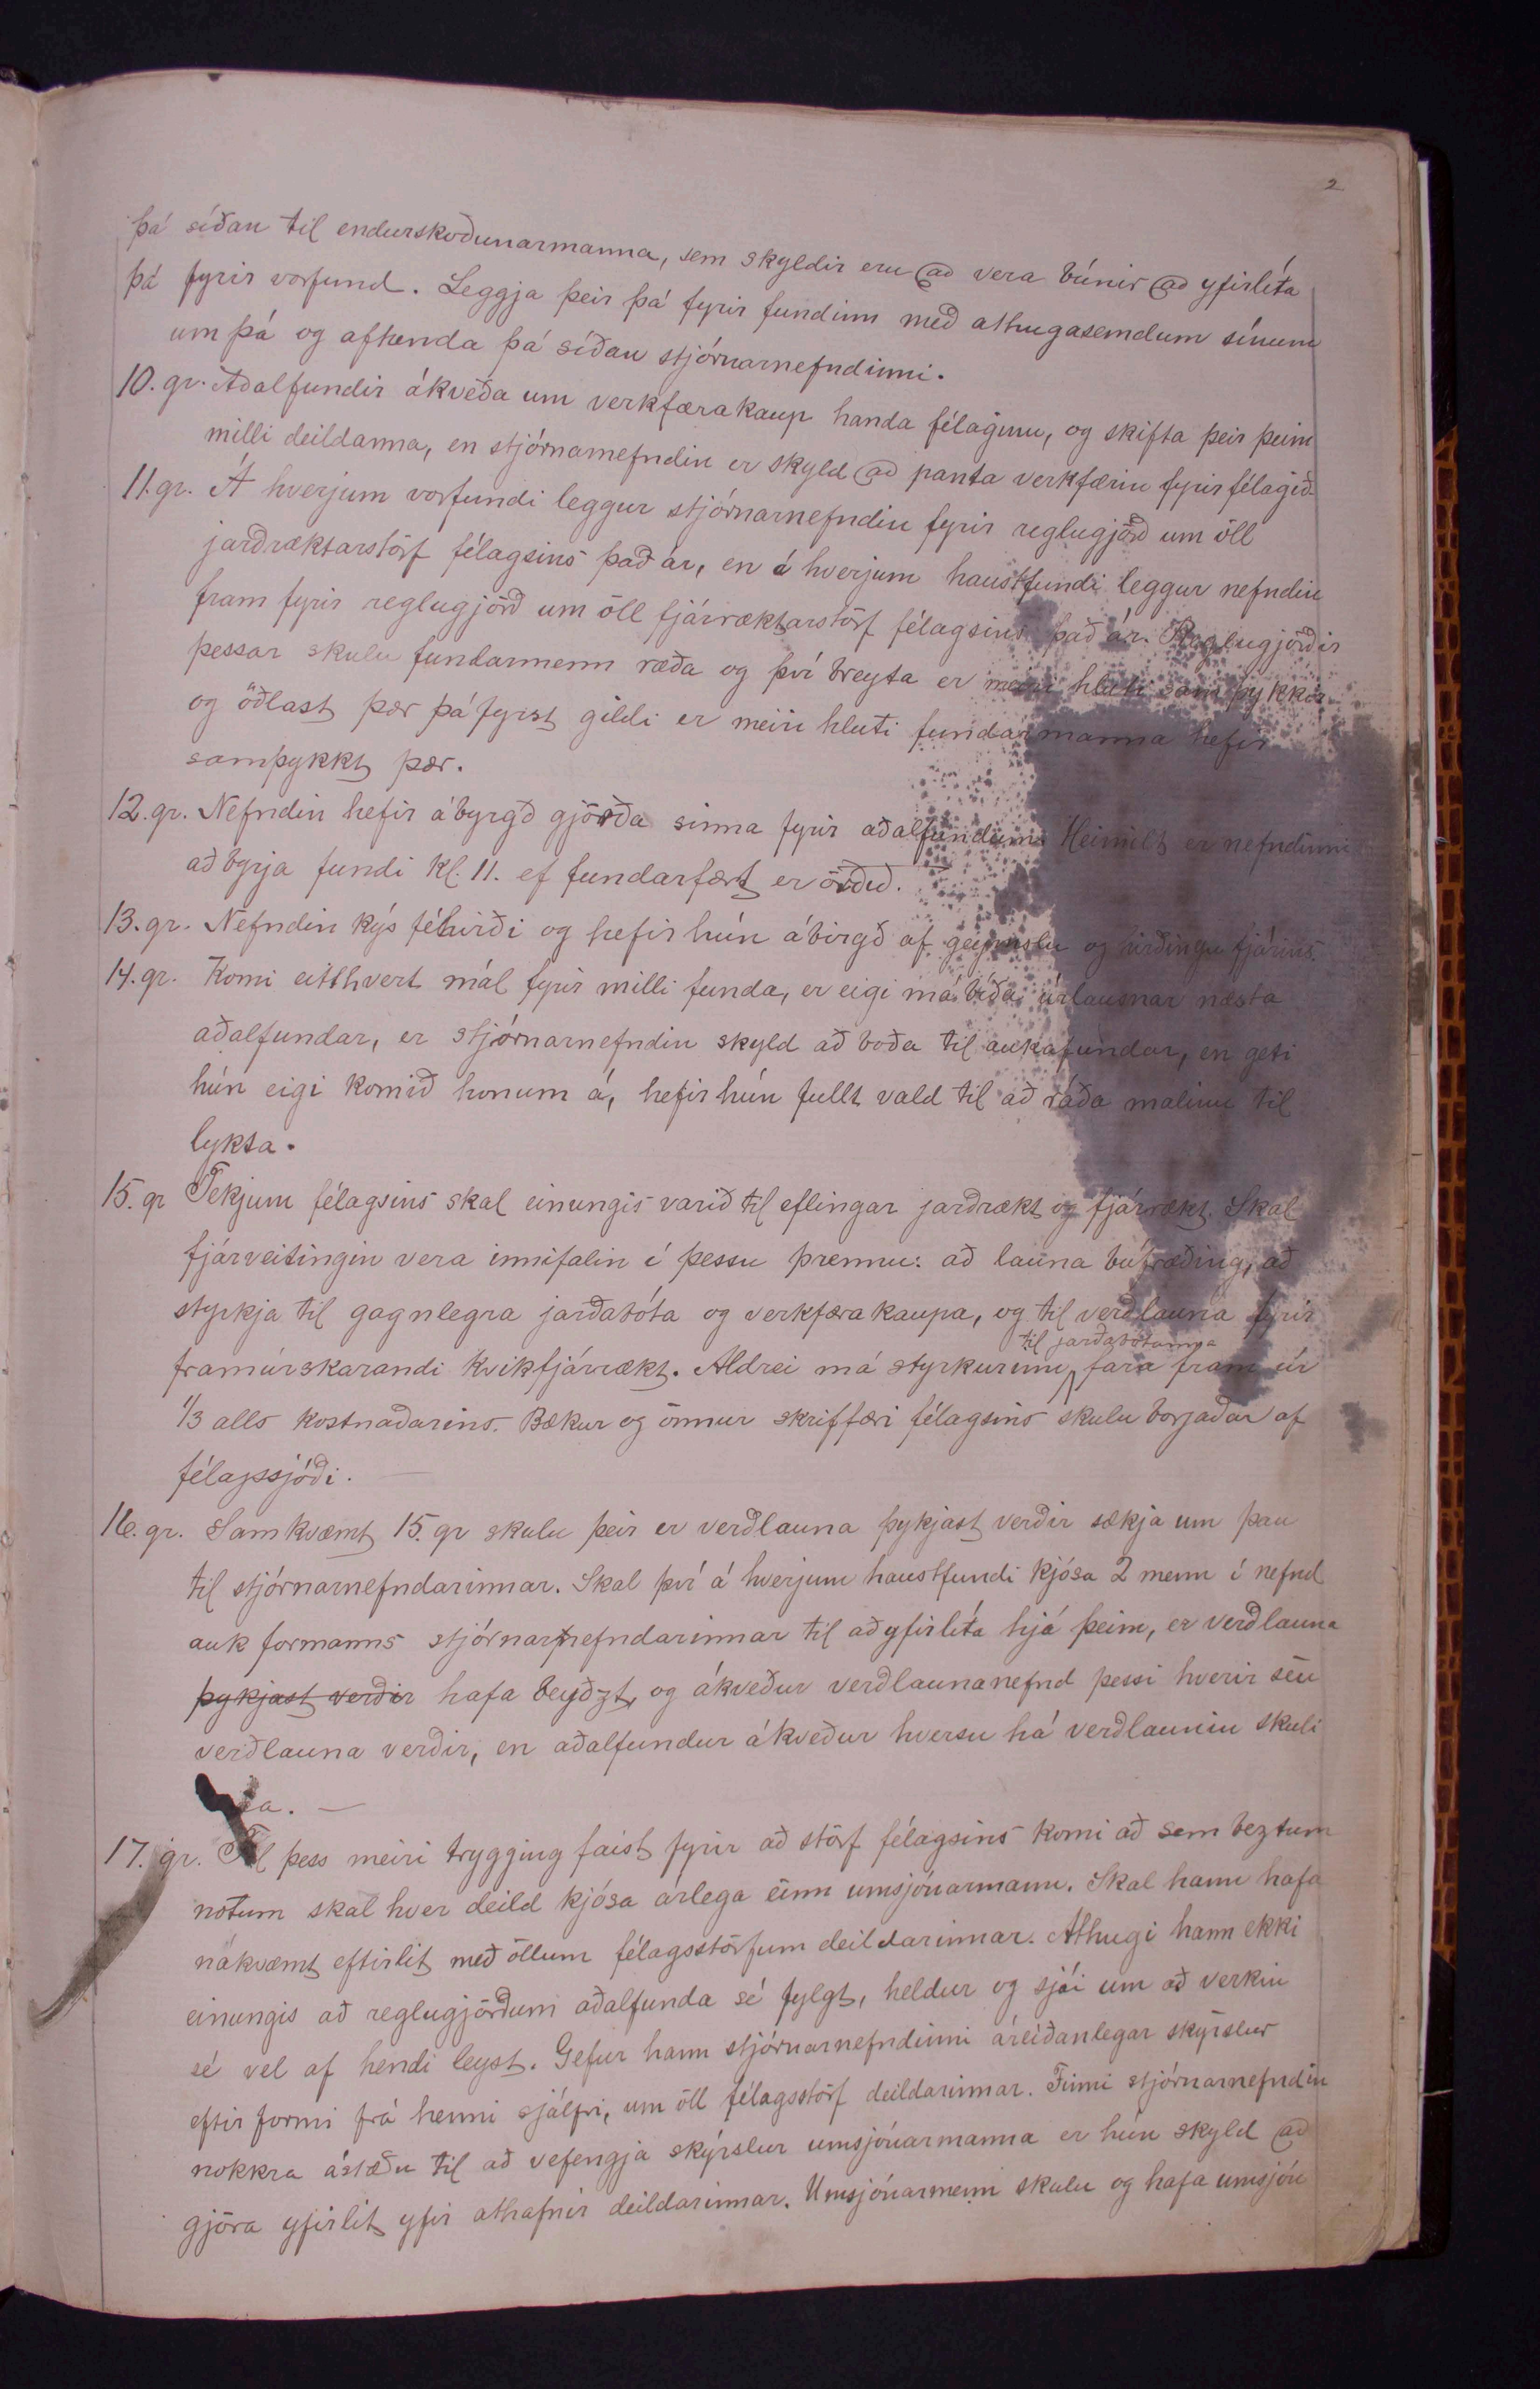 2
þá síðan til endurskoðunarmanna, sem skyldir eru að vera búnir að yfirlíta
þá fyrir vorfund. Leggja þeir þá fyrir fundinn með athugasemdum sínum
um þá og afhenda þá síðan stjórnarnefndinni.
10. gr. Aðalfundir ákveða um verkfærakaup handa félaginu, og skifta þeir þeim
milli deildanna, en stjórnarnefndin er skyld að panta verkfærin fyrir félagið.
11. gr. Á hverjum vorfundi leggur stjórnarnefndin fyrir reglugjörð um öll
jarðræktarstörf félagsins það ár, en á hverjum haustfundi leggur nefndin
fram fyrir reglugjörð um öll fjárræktarstörf félagsins það ár. Reglugjörðir
þessar skulu fundarmenn ræða og því breyta er meiri hluti samþykkir
og öðlast þær þá fyrst gildi er meiri hluti fundarmanna hefir
samþykkt þær.
12. gr. Nefndin hefir ábyrgð gjörða sinna fyrir aðalfundum. Heimilt er nefndinni
að byrja fundi kl. 11. ef fundarfært er örðið.
13. gr. Nefndin kýs féhirði og hefir hún ábirgð af geymslu og hirðingu fjárins.
14. gr. Komi eitthvert mál fyrir milli funda, er eigi má bíða úrlausnar næsta
aðalfundar, er stjórnarnefndin skyld að boða til aukafundar, en geti
hún eigi komið honum á, hefir hún fullt vald til að ráða malinu til
lykta.
15. gr Tekjum félagsins skal einungis varið til eflingar jarðrækt og fjárrækt. Skal
fjárveitingin vera innifalin í þessu þrennu: að launa búfræðing, að
styrkja til gagnlegra jarðabóta og verkfærakaupa, og til verðlauna fyrir
til jarðabótanna
framúrskarandi kvikfjárrækt. Aldrei má styrkurinn fara fram úr
1/3 alls kostnaðarins. Bækur og önnur skriffæri félagsins skulu borjaðar af
félagssjóði.
16. gr. Samkvæmt 15. gr skulu þeir er verðlauna þykjast verðir sækja um þau
til stjórnarnefndarinnar. Skal því á hverjum haustfundi kjósa 2 menn í nefnd
auk formanns stjórnarnefndarinnar til að yfirlíta hjá þeim, er verðlauna
þykjast verðir hafa beyðzt, og ákveður verðlaunanefnd þessi hverir séu
verðlauna verðir, en aðalfundur ákveður hversu há verðlaunin skuli
17. gr. Til þess meiri trygging faist fyrir að störf félagsins komi að sem beztum
notum skal hver deild kjósa árlega einn umsjónarmann. Skal hann hafa
nákvæmt eftirlit með öllum félagsstörfum deildarinnar. Athugi hann ekki
einungis að reglugjörðum aðalfunda sé fylgt, heldur og sjái um að verkin
sé vel af hendi leyst. Gefur hann stjórnarnefndinni áreiðanlegar skýrslur
eftir formi frá henni sjálfri, um öll félagsstörf deildarinnar. Finni stjórnarnefndin
nokkra ástæðu til að vefengja skýrslur umsjónarmanna er hún skyld að
gjöra yfirlit yfir athafnir deildarinnar. Umsjónarmenn skulu og hafa umsjón